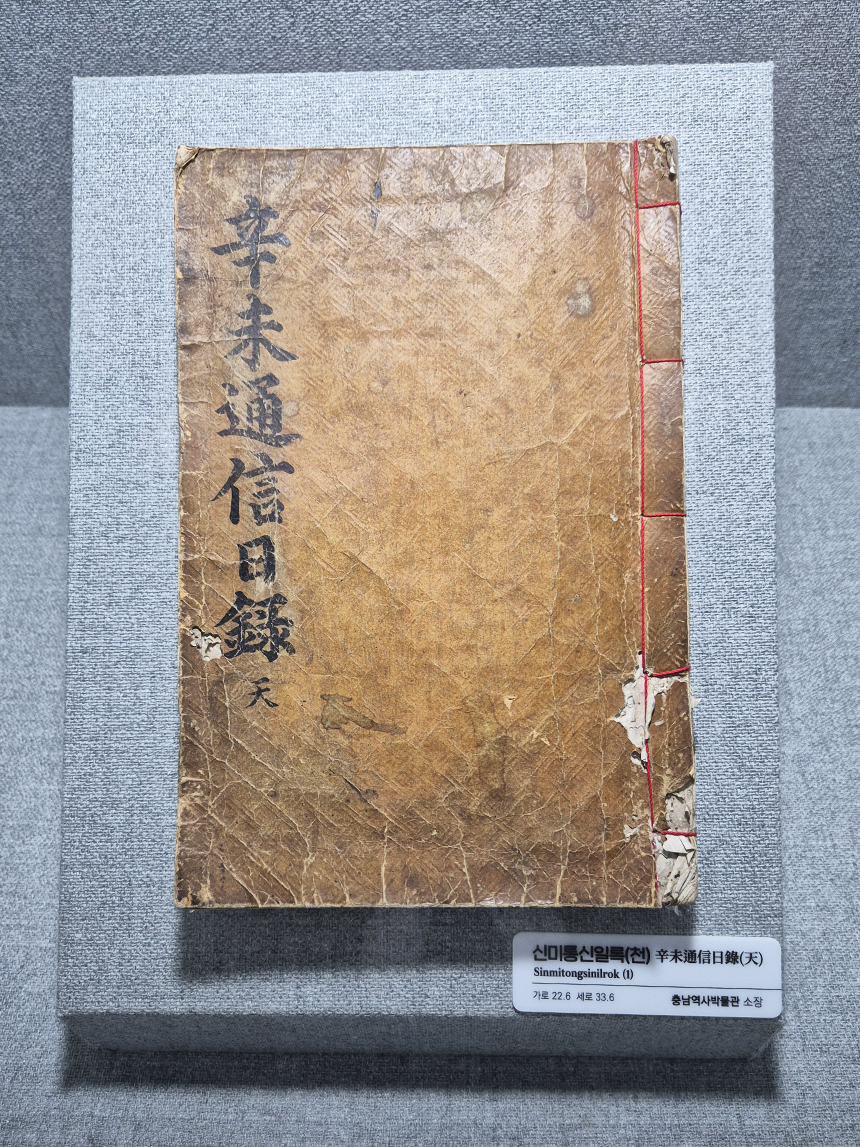 辛未通信日錄 天
신미통신일록(천) 辛未通信日錄(天)
Sinmitongsinilrok (1)
가로 22.6 세로 33.6
충남역사박물관 소장